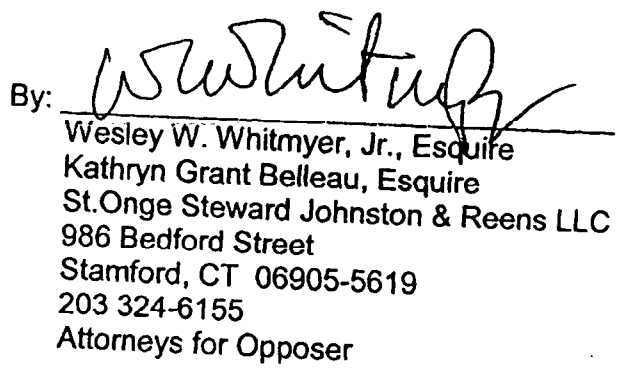 By: WWWhitmyer
Wesley W. Whitmyer, Jr., Esquire
Kathryn Grant Belleau, Esquire
St.Onge Steward Johnston & Reens LLC
986 Bedford Street
Stamford, CT 06905-5619
203 324-6155
Attorneys for Opposer